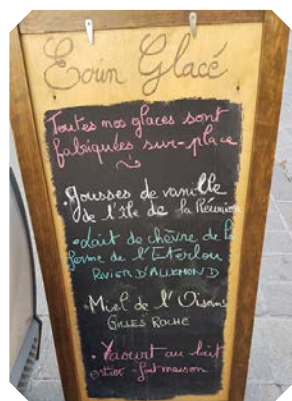 Ecrin Glacé
Toutes nos glaces sont
fabriquées sur-place
• gousses de vanille
de l'île de la Réunion
• Lait de chèvre de la
ferme de l'Eterlou
RIVIER D'ALLEMOND
• Miel de l'Oisans
GILLES ROCHE
• Yaourt au lait
entier - fait maison